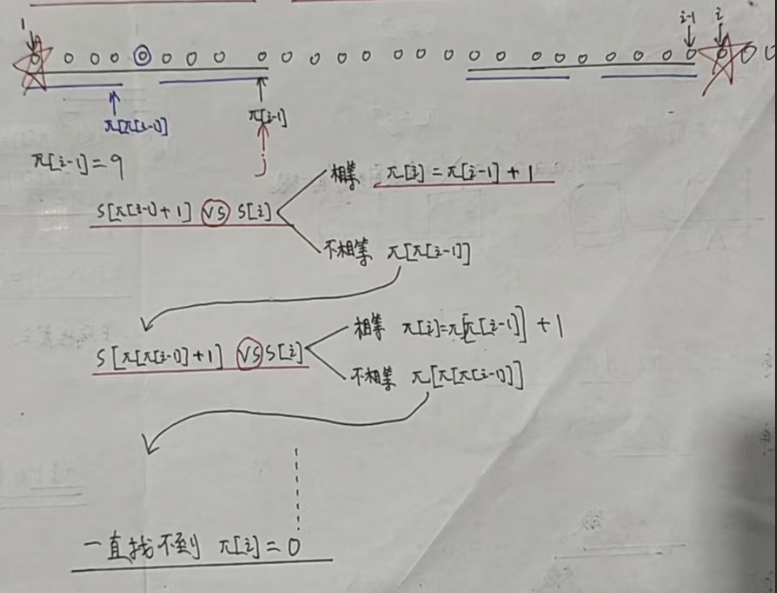 1 i-1 i
π[π[i-1]] π[i-1]
π[i-1]=9 j
相等 π[i]=π[i-1]+1
S[π[i-1]+1] VS S[i]
不相等 π[π[i-1]]
相等 π[i]=π[π[i-1]]+1
S[π[π[i-1]]+1] VS S[i]
不相等 π[π[π[i-1]]]
一直找不到 π[i]=0